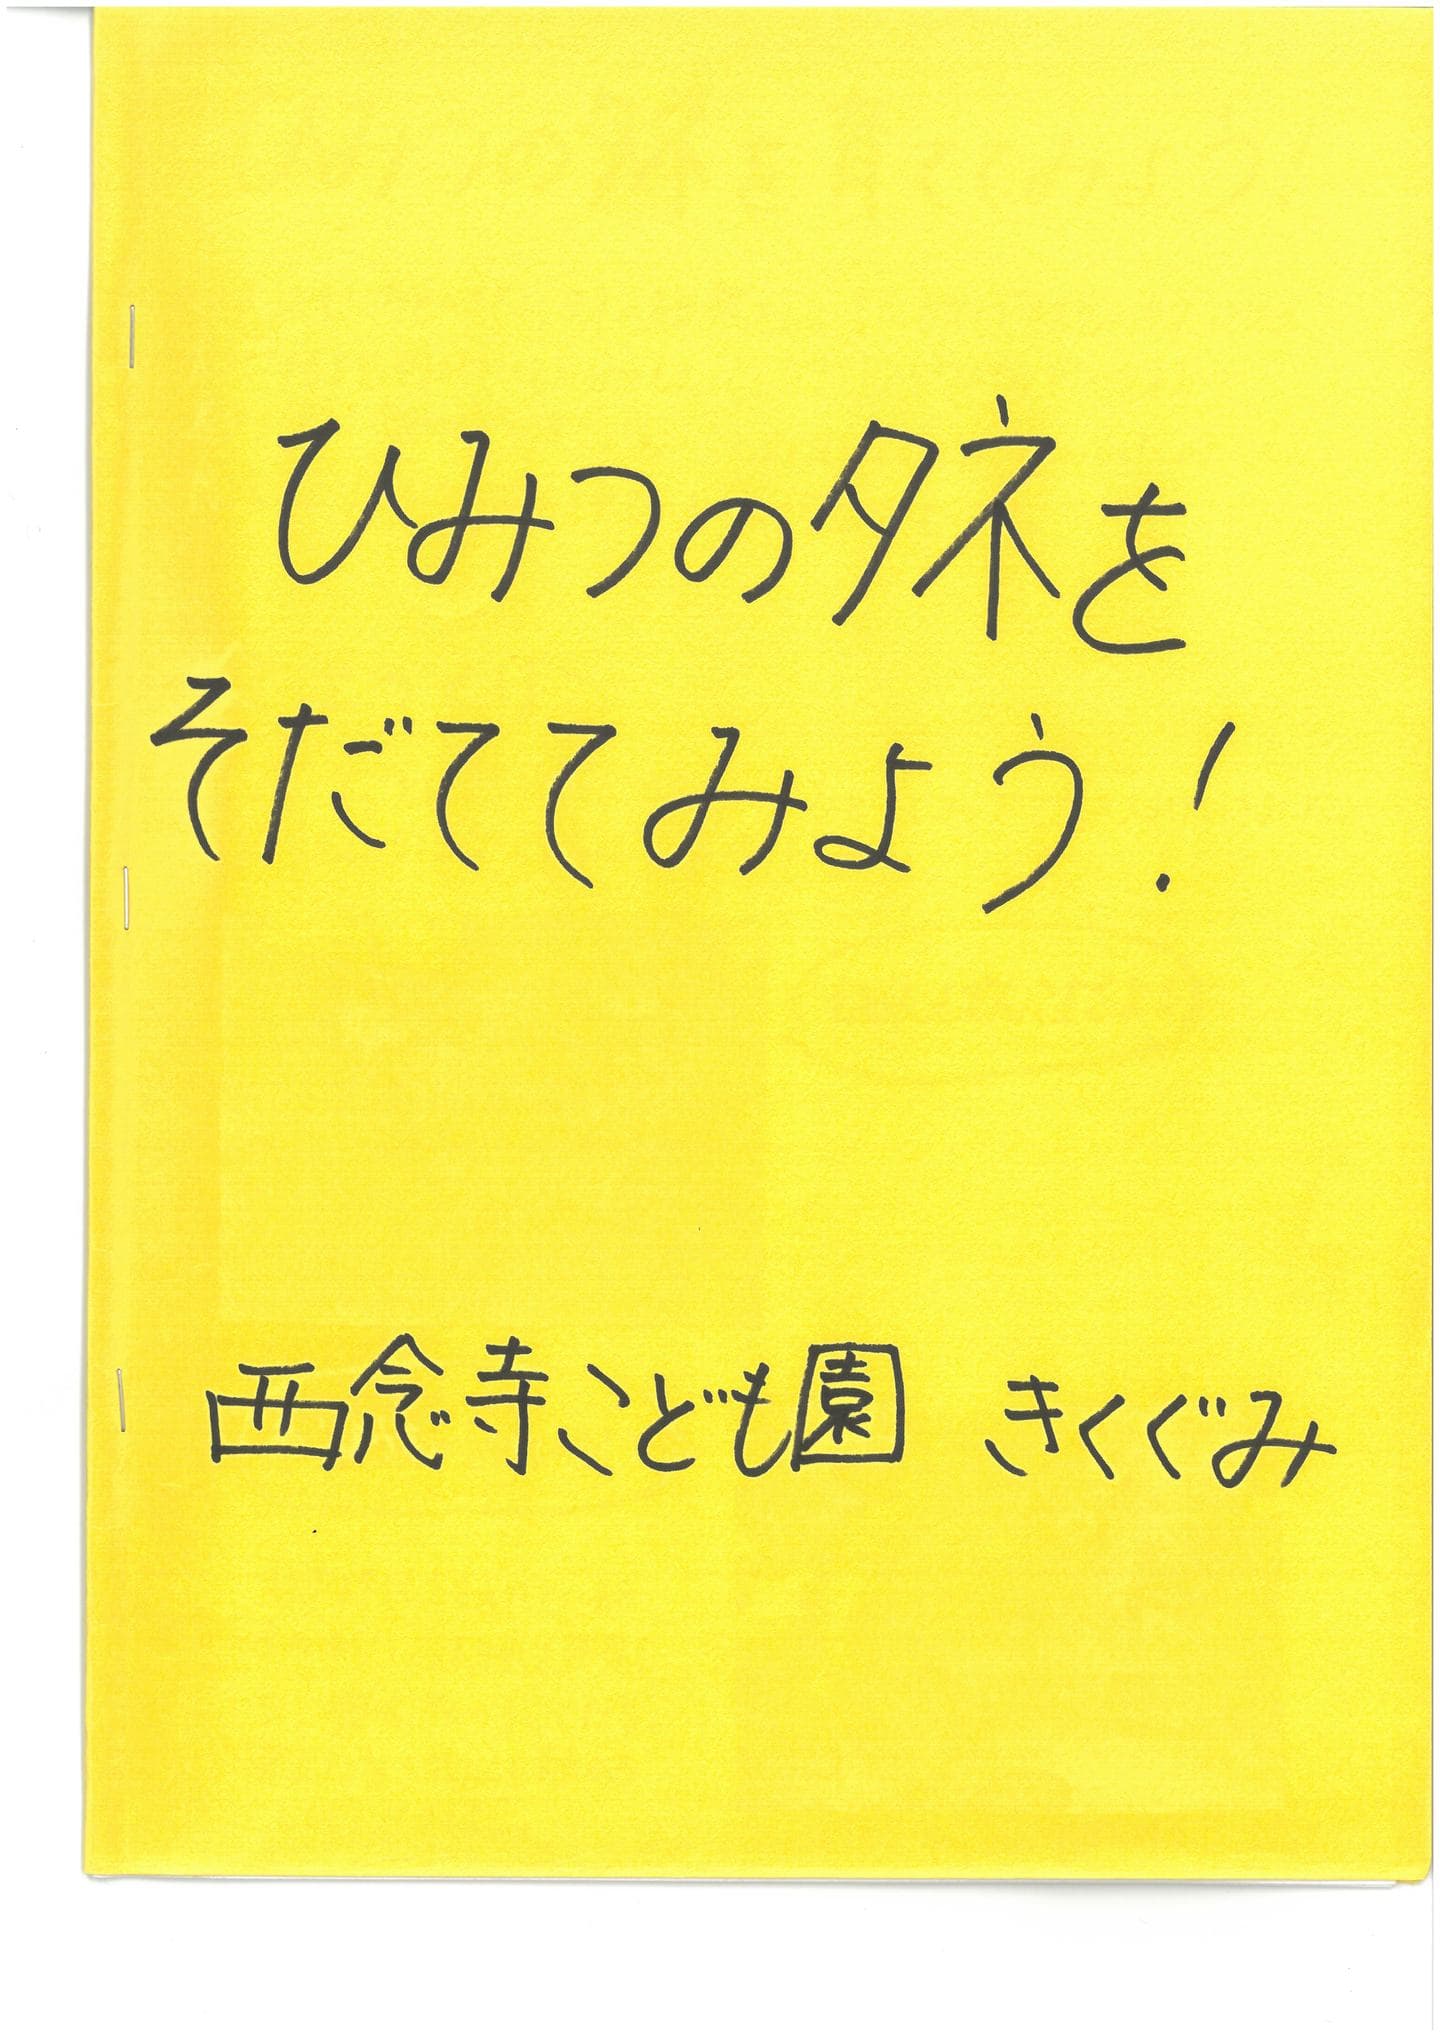 ひみつのタネを
そだててみよう！
西念寺こども園 きくぐみ